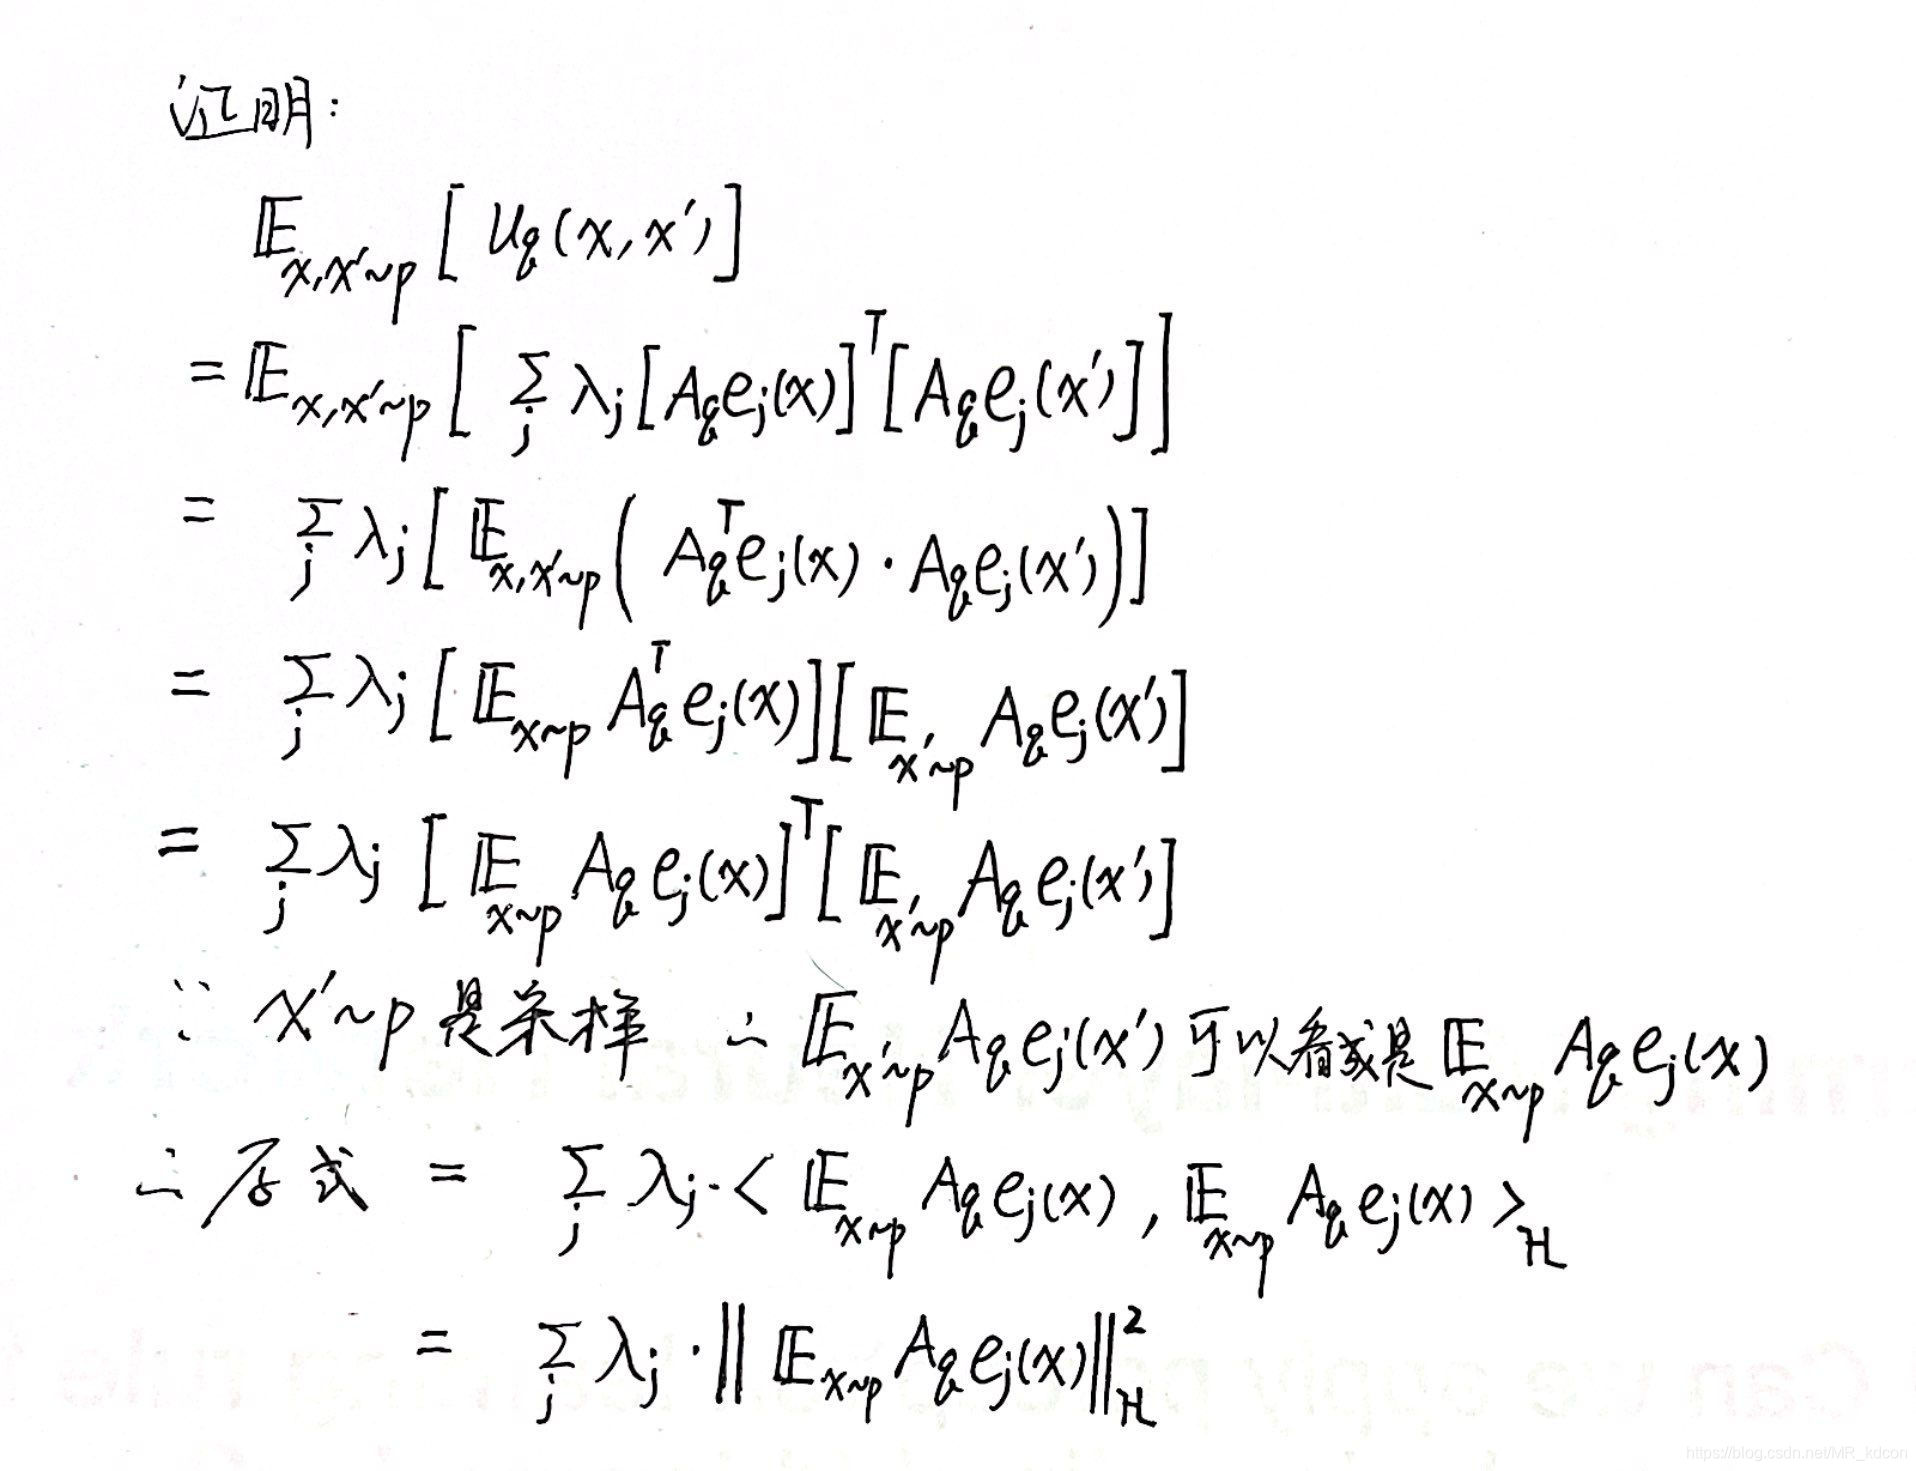 证明:
𝔼_{x,x'~p} [ u_q(x, x') ]
= 𝔼_{x,x'~p} [ Σ_j λ_j [A_q e_j(x)]^T [A_q e_j(x')] ]
= Σ_j λ_j [ 𝔼_{x,x'~p} ( A_q^T e_j(x) · A_q e_j(x') ) ]
= Σ_j λ_j [ 𝔼_{x~p} A_q^T e_j(x) ] [ 𝔼_{x'~p} A_q e_j(x') ]
= Σ_j λ_j [ 𝔼_{x~p} A_q e_j(x) ]^T [ 𝔼_{x'~p} A_q e_j(x') ]
∵ x'~p 是采样 ∴ 𝔼_{x'~p} A_q e_j(x') 可以看成是 𝔼_{x~p} A_q e_j(x)
∴ 原式 = Σ_j λ_j · < 𝔼_{x~p} A_q e_j(x) , 𝔼_{x~p} A_q e_j(x) >_H
= Σ_j λ_j · || 𝔼_{x~p} A_q e_j(x) ||_H^2
https://blog.csdn.net/MR_kdcon